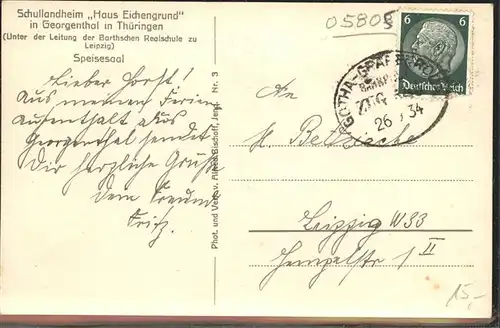 Schullandheim „Haus Eichengrund"
in Georgenthal in Thüringen
(Unter der Leitung der Barthschen Realschule zu
Leipzig)
Speisesaal
Lieber Horst!
Aus meinem Ferien
aufenthalt aus
Georgenthal sendet
Dir herzliche Grüße
Dein Freund
Fritz.
Phot. und Verlag Alfred Bischoff, Jena. Nr. 3
05808
6 6
Deutsches Reich
GOTHA-GRÄFENRODA
BAHNPOST
ZUG
26 34
An
H.
Leipzig W33
1 II
15,-